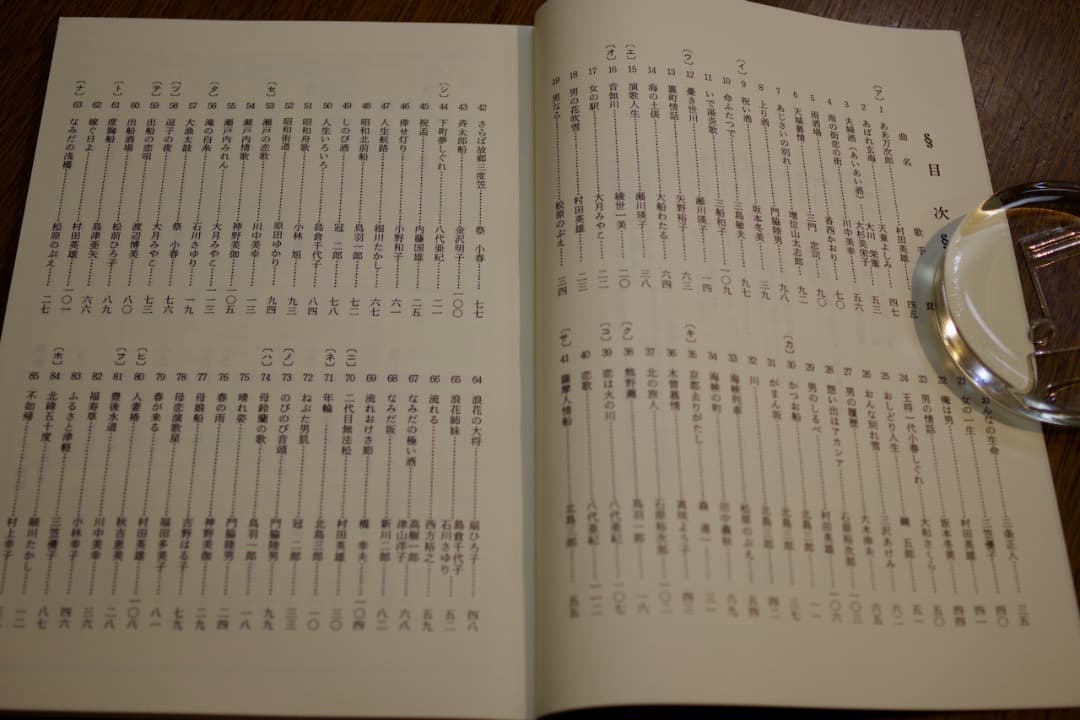 §目次§
曲名 歌手 頁
〔ア〕 1 ああ万次郎 村田英雄 四五
2 あばれ玄海 天童よしみ 四七
3 夫婦酒（あいあい酒） 大川栄策 大杉美栄子 五三
4 雨の街恋の街 川中美幸 五六
5 雨酒場 香西かおり 七〇
6 天城慕情 三門忠司 九〇
7 あじさいの別れ 増位山太志郎 九八
8 上り酒 門脇陸男
〔イ〕 9 祝い酒 坂本冬美 三九
10 命ふたつで 三島敏夫 七九
11 いで湯哀歌 三船和子 一〇九
〔ウ〕 12 憂き世川 瀬川瑛子 一四
13 裏町情話 矢野裕子
14 海の土俵 大船わたる 六四
〔エ〕 15 演歌人生 瀬川瑛子 三八
〔オ〕 16 音無川 綾世一美 二〇
17 女の駅 大月みやこ 二二
18 男の花吹雪 村田英雄 二三
19 男なら 松原のぶえ 三四
おんなの生命 三条正人 三五
21 女の一生 三笠優子 四〇
22 俺は男 村田英雄 四一
23 男の情話 坂本冬美 四四
24 王将一代小春しぐれ 大和さくら 五〇
25 おしどり人生 鏡五郎 五一
26 おんな別れ雪 三沢あけみ 六五
27 男の履歴 大木伸夫 六三
28 想い出はアカシア 石原裕次郎 一〇三
29 男のしるべ 村田英雄 一一
〔カ〕 30 かつお船 北島三郎 三七
31 がまん坂 北島三郎 五四
32 川 北島三郎
33 海峡列車 松原のぶえ 六九
34 海峡の町 田中義秋 九五
〔キ〕 35 京都去りがたし 森進一 三一
36 木曽慕情 真咲よう子 三六
37 北の旅人 石原裕次郎 六二
〔ク〕 38 熊野灘 鳥羽一郎 一六
〔コ〕 39 恋は火の川 八代亜紀 一〇七
40 恋歌 八代亜紀 一一二
〔サ〕 41 薩摩人情船 北島一郎 五五
42 さらば故郷三度笠 祭小春 七七
43 斉太郎船 金沢明子 一〇〇
〔シ〕 44 下町夢しぐれ 八代亜紀 二一
45 祝盃 内藤国雄 二五
46 倖せ灯り 小野和子 六一
47 人生航路 細川たかし 六七
48 昭和北前船 鳥羽一郎 八二
49 しのび酒 冠二郎 七八
50 人生いろいろ 島倉千代子 八四
51 昭和の歌 小林旭 九三
52 昭和街道 原田ゆかり 九四
〔セ〕 53 瀬戸の恋歌 川中美幸 一三
54 瀬戸内情歌 神野美伽 一〇五
55 瀬戸内みれん 大月みやこ 五六
〔タ〕 56 滝の白糸 石川さゆり 一九
57 大漁太鼓 祭小春 七六
〔ツ〕 58 逗子の夜 大月みやこ 七三
〔テ〕 59 出船の恋唄 渡辺博美 八〇
60 出船酒場 松前ひろ子 八九
〔ト〕 61 度胸船 島津亜矢 六六
62 嫁ぐ日よ 村田英雄 一〇一
〔ナ〕 63 なみだの浅橋 松原のぶえ 二七
64 浪花の大将 扇ひろ子 四八
65 浪花姉妹 島倉千代子 石川さゆり 五二
66 流れる 西方裕之 五九
67 なみだの極い酒 高樹一郎 津山洋子 六八
68 なみだ坂 新川二郎 八二
69 流れおけさ節 橋幸夫 一〇四
〔ニ〕 70 二代目無法松 村田英雄 三〇
〔ネ〕 71 年輪 北島三郎 一〇
72 ねぶた男肌 冠二郎 三三
〔ノ〕 73 のびのび音頭 門脇陸男 九九
〔ハ〕 74 母鈴蘭の歌 鳥羽一郎 一八
75 晴れ姿 門脇陸男 二四
76 春の雨 神野美伽 二九
77 母娘船 吉野はる子 七九
78 母恋演歌星 福田多美子
79 春が来る 村田英雄 八一
〔ヒ〕 80 人妻椿 秋吉恵美 一〇八
〔フ〕 81 豊後水道 川中美幸 二八
82 福寿草 小林幸子 三六
83 ふるさと津軽 三笠優子 四六
〔ホ〕 84 北緯五十度 細川たかし 八七
85 不如帰 村上幸子 一二